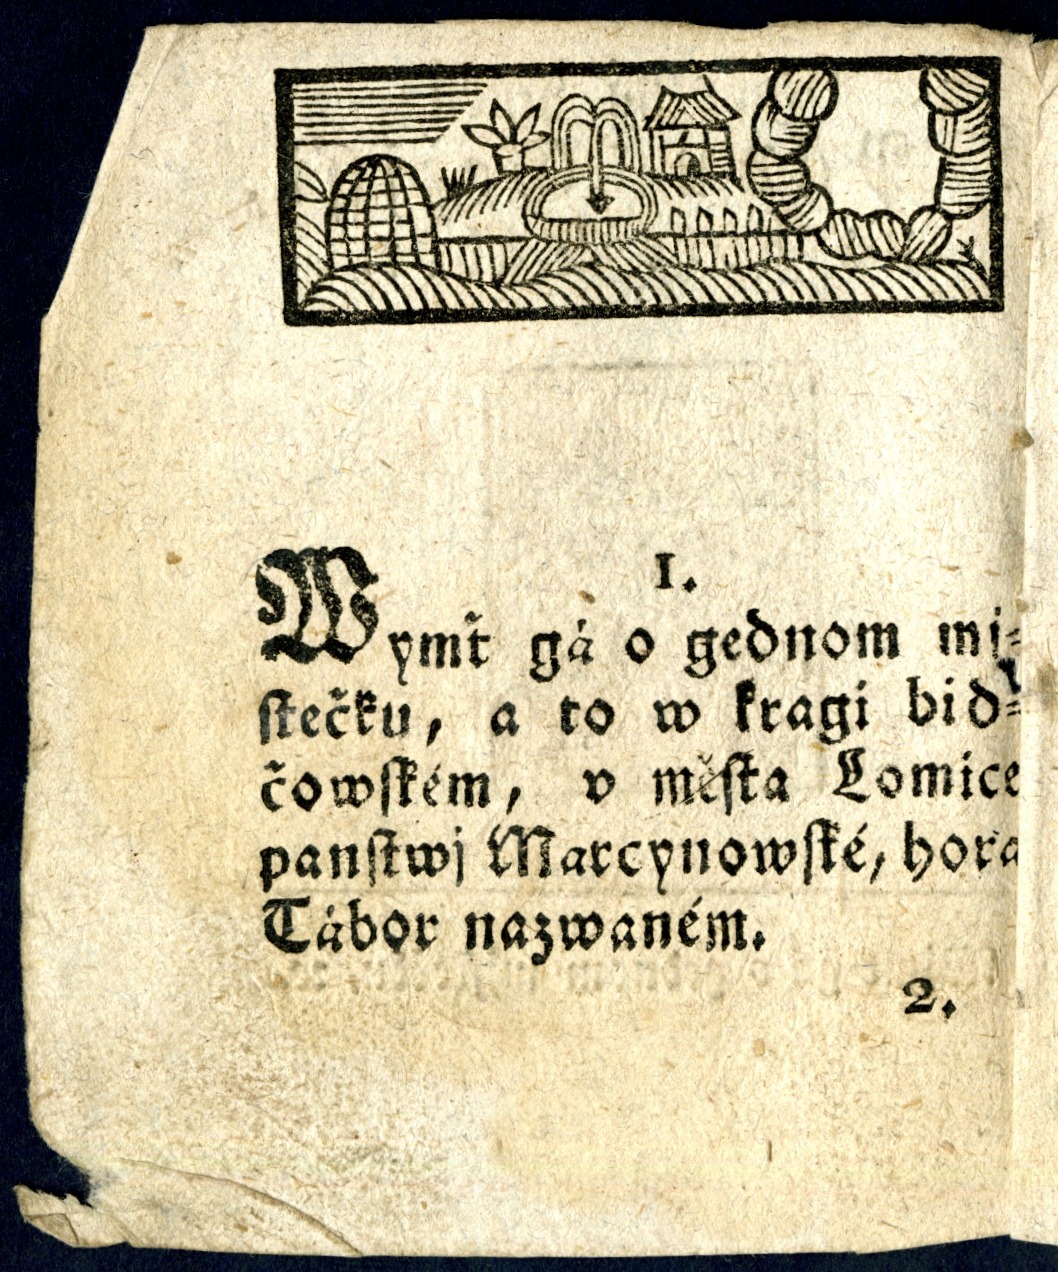 1.
Wymť gá o gednom mi=
ſtečku, a to w kragi bid=
čowſkém, v měſta Lomice
panſtwj Marcynowſké, hora
Tábor nazwaném.
2.